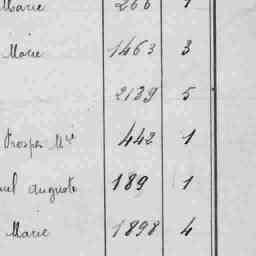 Marie 266 1
Marie 1463 3
2189 5
Prosper Mie 442 1
auguste 189 1
Marie 1898 4